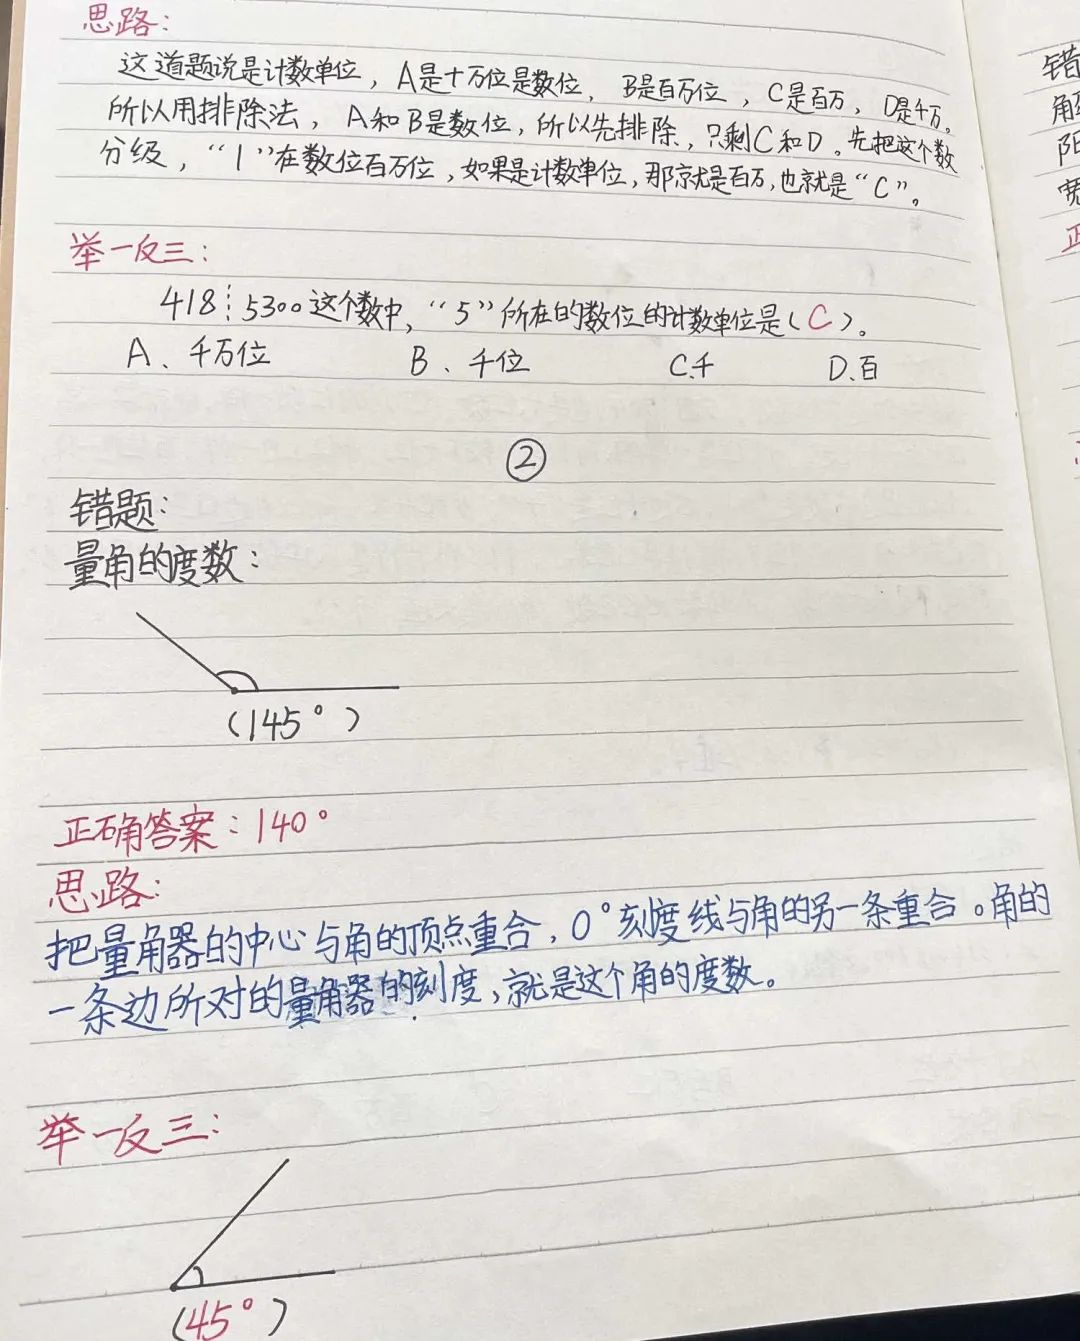 思路：
这道题说是计数单位，A是十万位是数位，B是百万位，C是百万，D是千万。
所以用排除法，A和B是数位，所以先排除，只剩C和D。先把这个数
分级，“1”在数位百万位，如果是计数单位，那就是百万，也就是“C”。
举一反三：
418┊5300这个数中，“5”所在的数位的计数单位是（C）。
A、千万位 B、千位 C.千 D、百
②
错题：
量角的度数：
（145°）
正确答案：140°
思路：
把量角器的中心与角的顶点重合，0°刻度线与角的另一条重合。角的
一条边所对的量角器的刻度，就是这个角的度数。
举一反三：
（45°）
错
解
阳
宽
正